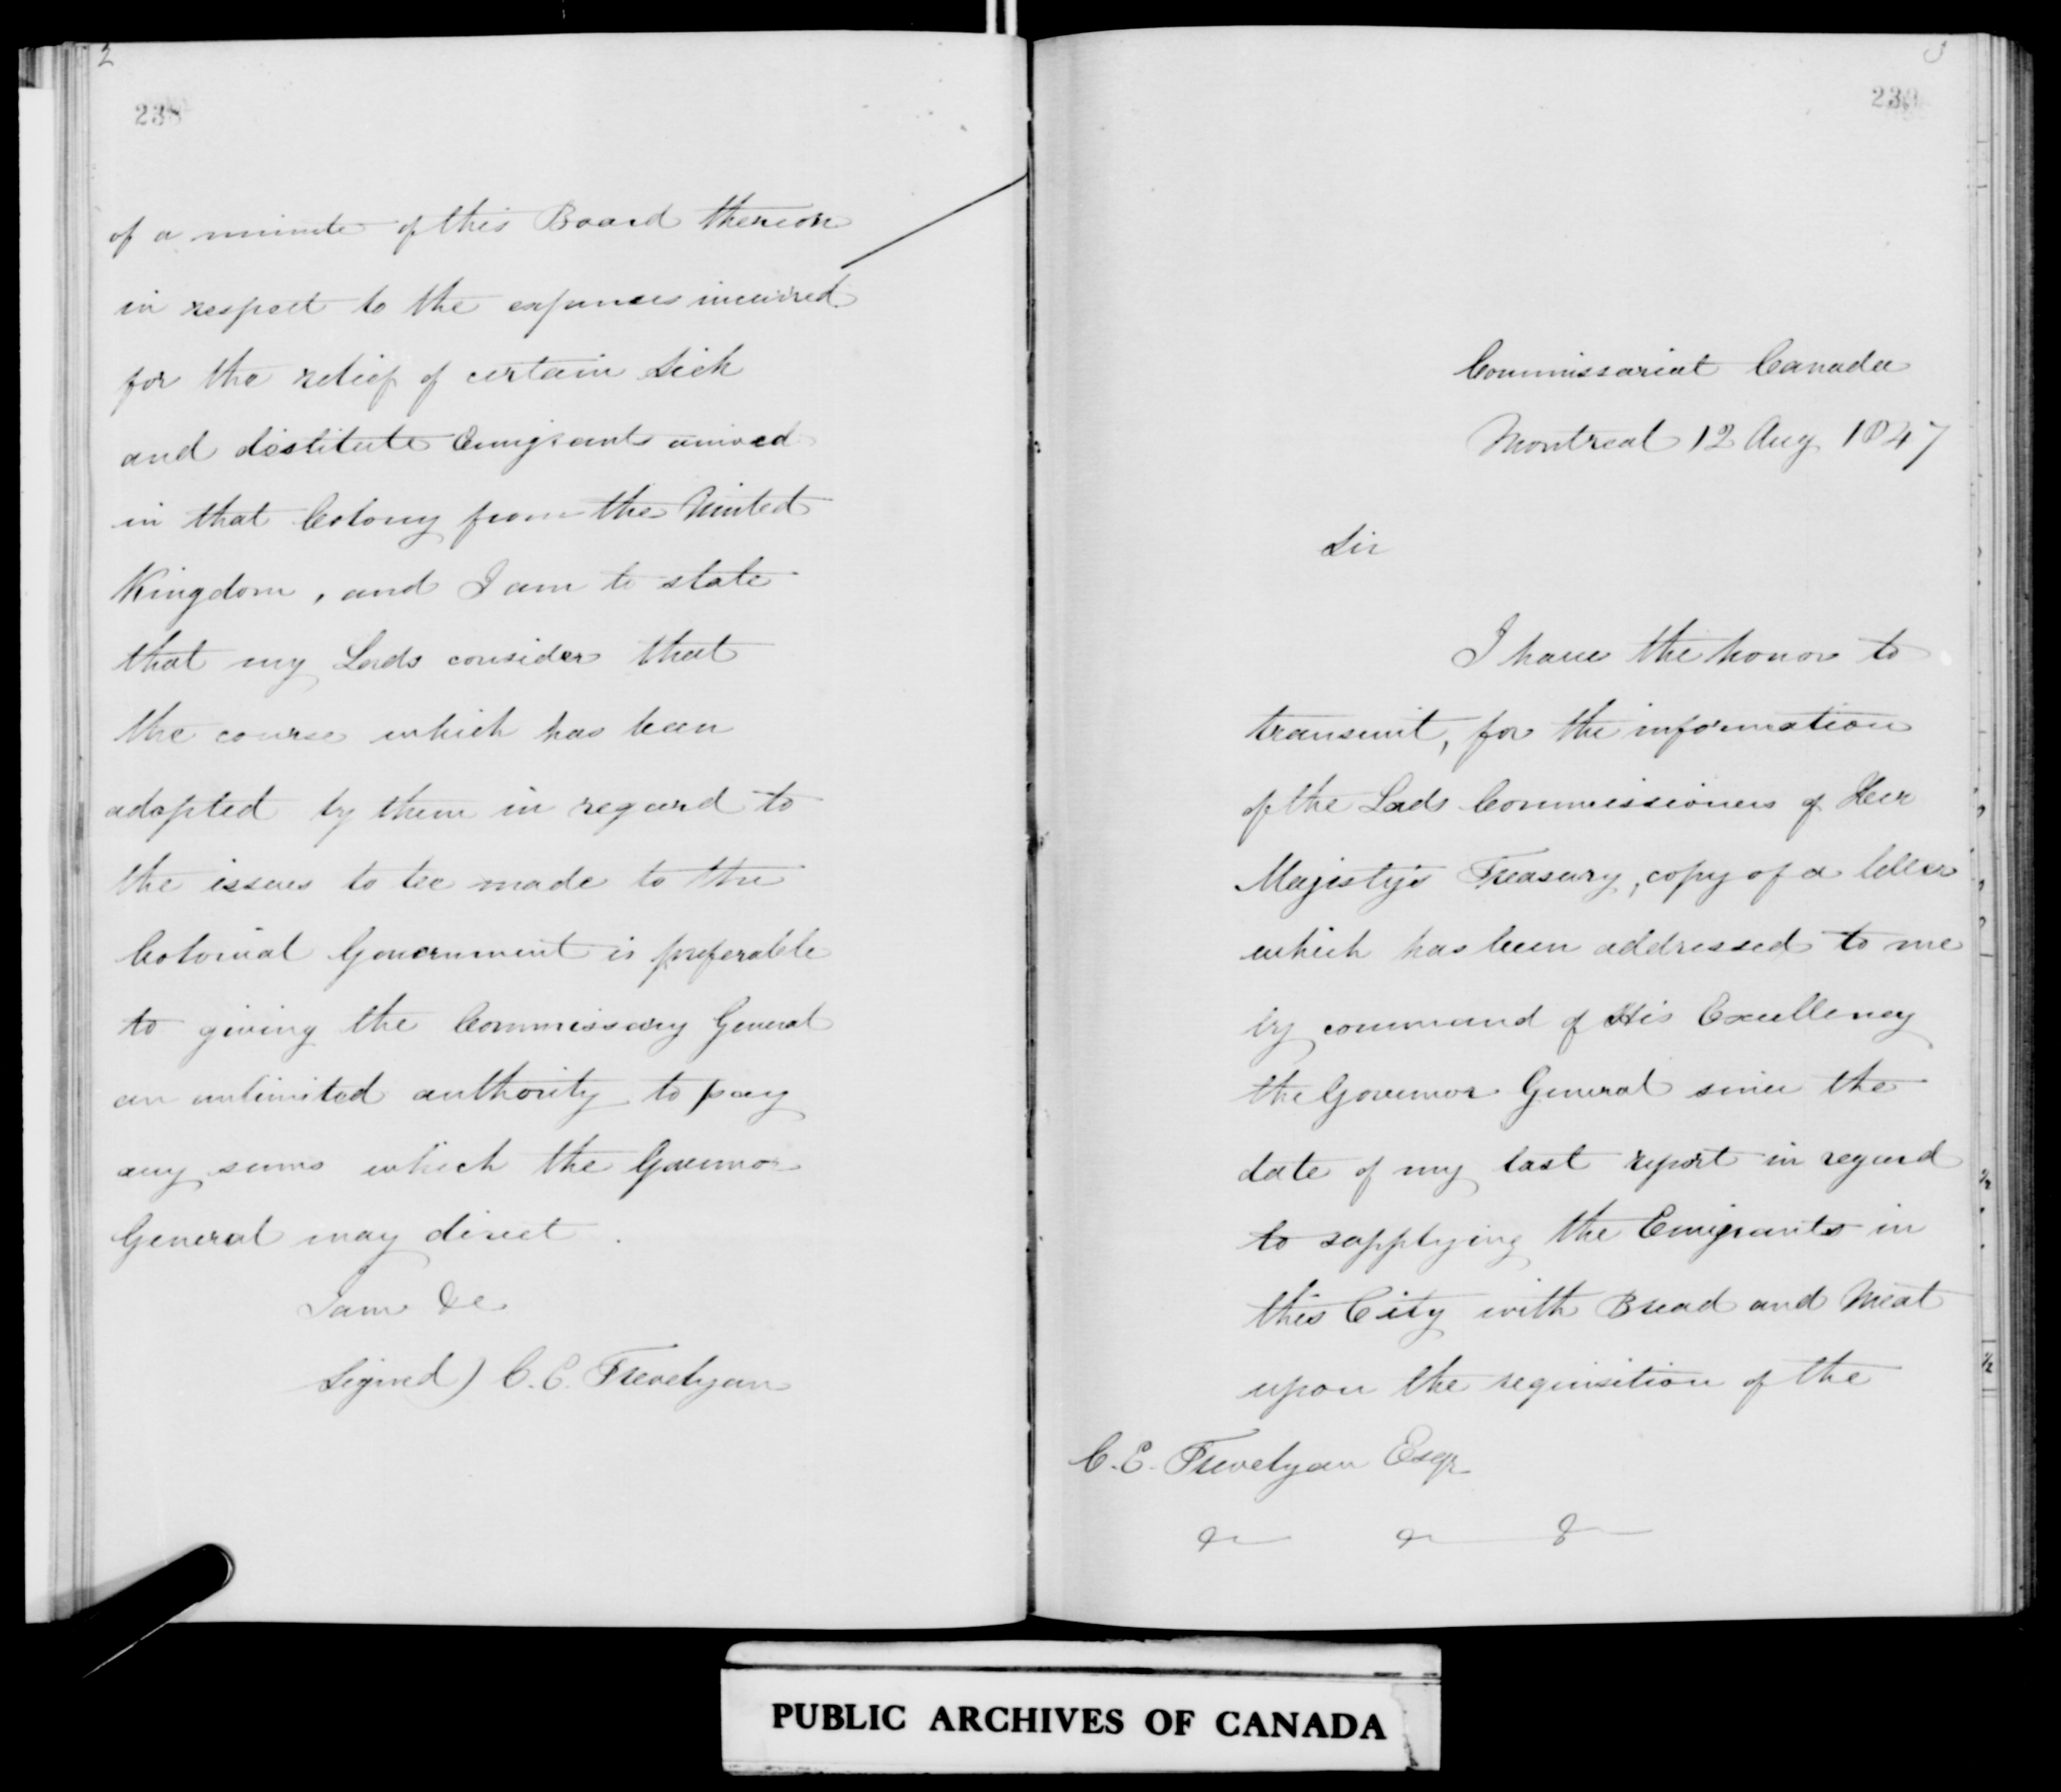 2
238
of a minute of this Board thereon
in respect to the expenses incurred
for the relief of certain Sick
and destitute Emigrants arrived
in that Colony from the United
Kingdom, and I am to state
that my Lords consider that
the course which has been
adopted by them in regard to
the issues to be made to the
Colonial Government is preferable
to giving the Commissary General
an unlimited authority to pay
any sums which the Governor
General may direct.
I am &c
Signed) C. E. Trevelyan
3
239
Commissariat Canada
Montreal 12 Aug 1847
Sir
I have the honor to
transmit, for the information
of the Lords Commissioners of Her
Majesty's Treasury, copy of a letter
which has been addressed to me
by command of His Excellency
the Governor General since the
date of my last report in regard
to supplying the Emigrants in
this City with Bread and Meat
upon the requisition of the
C. E. Trevelyan Esqr
& & &
PUBLIC ARCHIVES OF CANADA